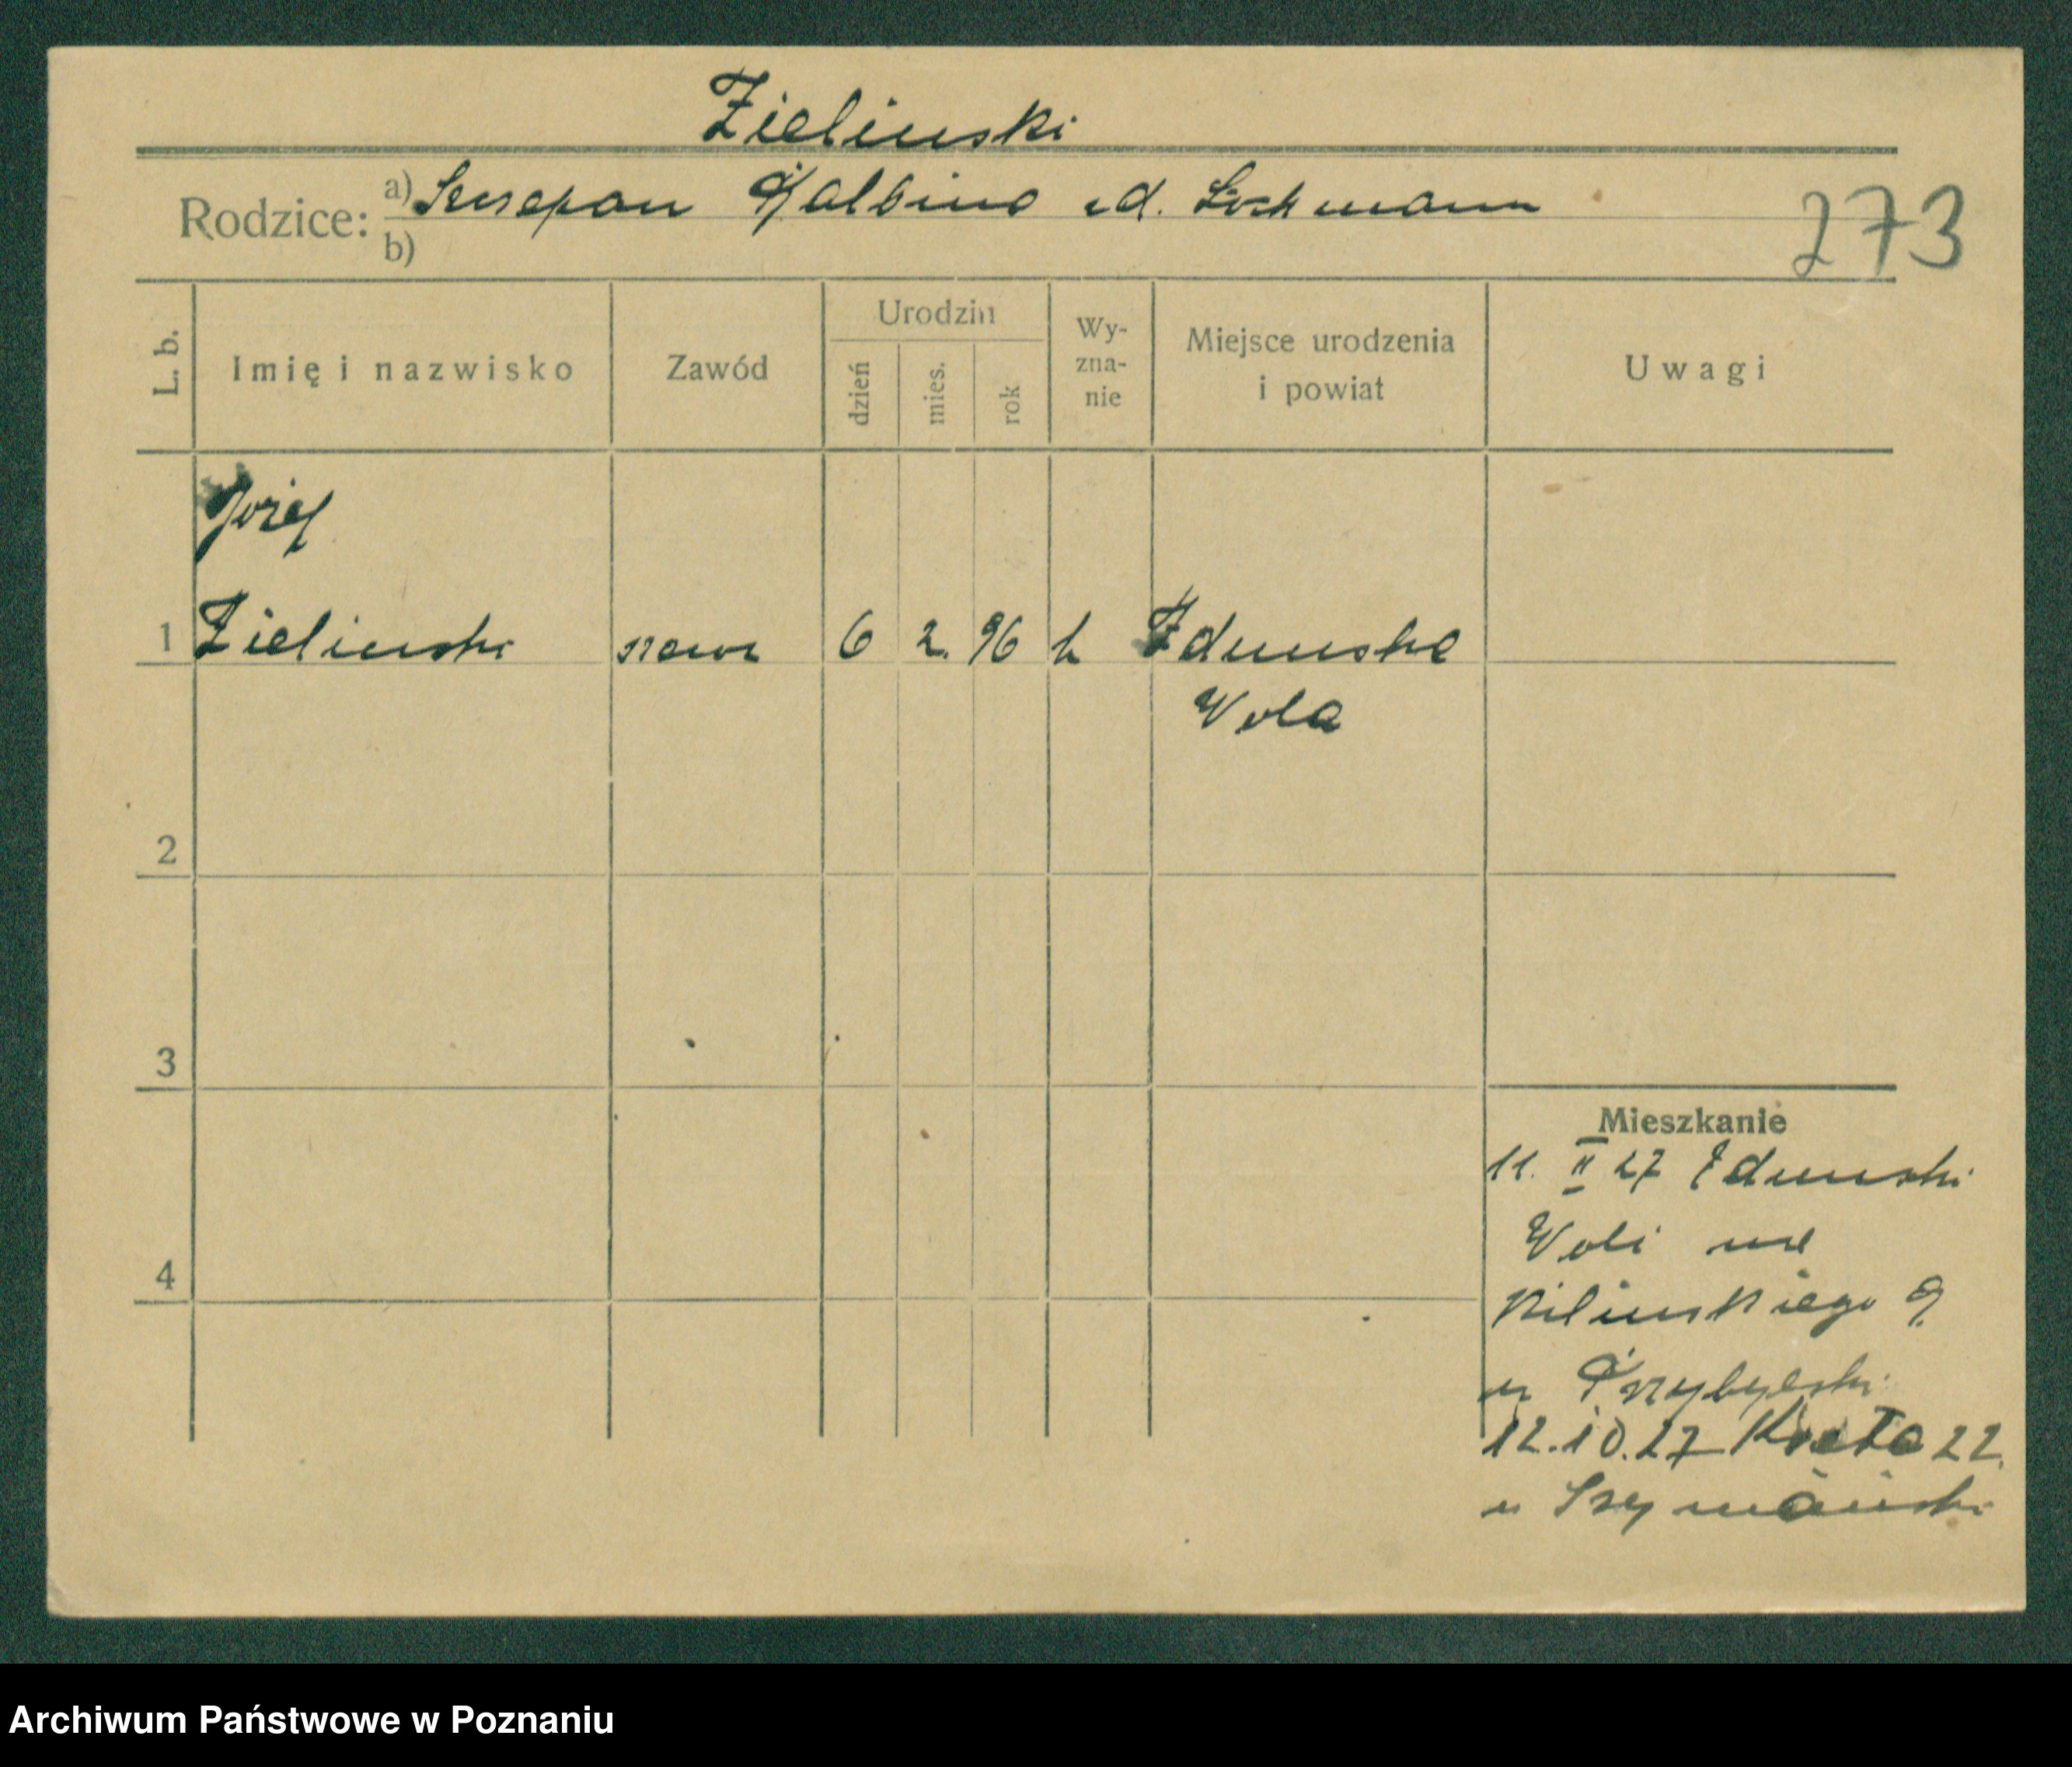 Zielinski
Rodzice: a) Szczepan Balbina zd.
b)
273
L. b.
Imię i nazwisko
Zawód
Urodzin
dzień
mies.
rok
Wy-
zna-
nie
Miejsce urodzenia
i powiat
Uwagi
Józef
1 Zielinski szewc 6 2. 96 k Zdunska
Wola
2
3
4
Mieszkanie
11. II 27 Zdunski
Woli
Kilinskiego 9.
u Przybylski
12.10.27 22.
u Szymański
Archiwum Państwowe w Poznaniu